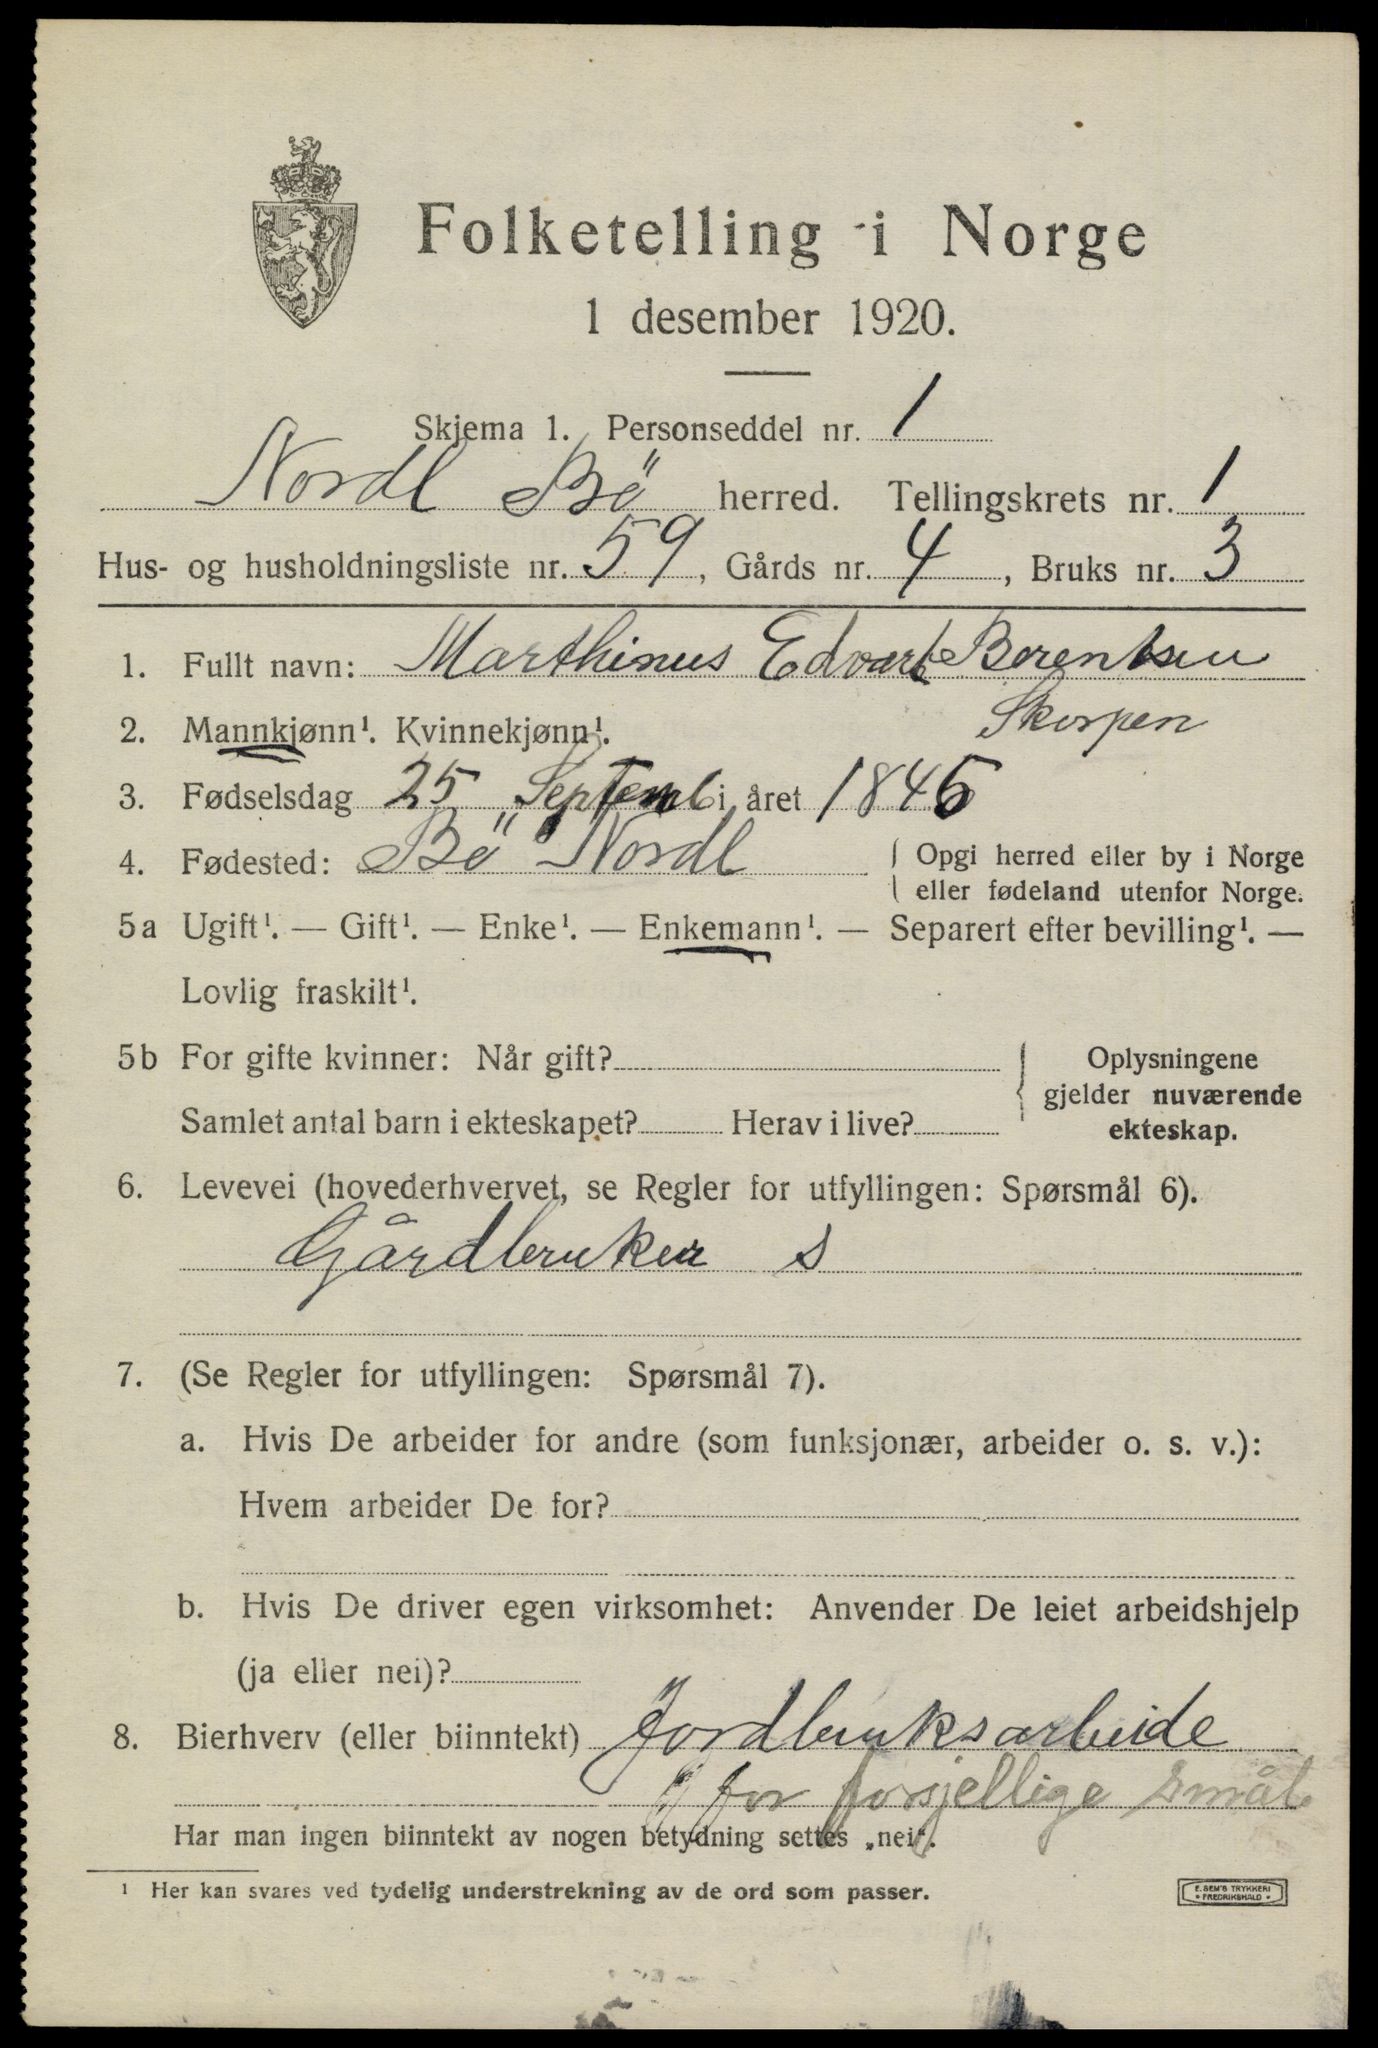 Folketelling i Norge
1 desember 1920.
Skjema 1. Personseddel nr. 1
Nordl Bö herred. Tellingskrets nr. 1
Hus- og husholdningsliste nr. 59, Gårds nr. 4, Bruks nr. 3
1. Fullt navn: Marthinus Edvart Berentsen
Skorpen
2. Mannkjønn¹. Kvinnekjønn¹.
3. Fødselsdag 25 Septemb i året 1846
4. Fødested: Bö Nordl { Opgi herred eller by i Norge
eller fødeland utenfor Norge.
5a Ugift¹. — Gift¹. — Enke¹. — Enkemann¹. — Separert efter bevilling¹. —
Lovlig fraskilt¹.
5b For gifte kvinner: Når gift? { Oplysningene
gjelder nuværende
Samlet antal barn i ekteskapet? Herav i live? ekteskap.
6. Levevei (hovederhvervet, se Regler for utfyllingen: Spørsmål 6).
Gårdbruker s
7. (Se Regler for utfyllingen: Spørsmål 7).
a. Hvis De arbeider for andre (som funksjonær, arbeider o. s. v.):
Hvem arbeider De for?
b. Hvis De driver egen virksomhet: Anvender De leiet arbeidshjelp
(ja eller nei)?
8. Bierhverv (eller biinntekt) Jordbruksarbeide
for forsjellige
Har man ingen biinntekt av nogen betydning settes „nei".
¹ Her kan svares ved tydelig understrekning av de ord som passer.
E. SEM'S TRYKKERI
• FREDRIKSHALD •